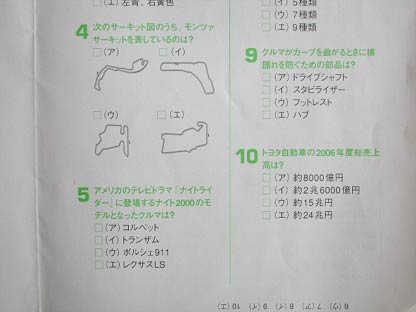 □(エ)左青、右黄色
4 次のサーキット図のうち、モンツァ
サーキットを表しているのは?
□(ア) □(イ)
□(ウ) □(エ)
5 アメリカのテレビドラマ『ナイトライ
ダー』に登場するナイト2000のモ
デルとなったクルマは?
□(ア)コルベット
□(イ)トランザム
□(ウ)ポルシェ911
□(エ)レクサスLS
□(イ)5種類
□(ウ)7種類
□(エ)9種類
9 クルマがカーブを曲がるときに横
揺れを防ぐための部品は?
□(ア)ドライブシャフト
□(イ)スタビライザー
□(ウ)フットレスト
□(エ)ハブ
10 トヨタ自動車の2006年度総売上
高は?
□(ア)約8000億円
□(イ)約2兆6000億円
□(ウ)約15兆円
□(エ)約24兆円
6(ウ) 7(ア) 8(イ) 9(イ) 10(エ)